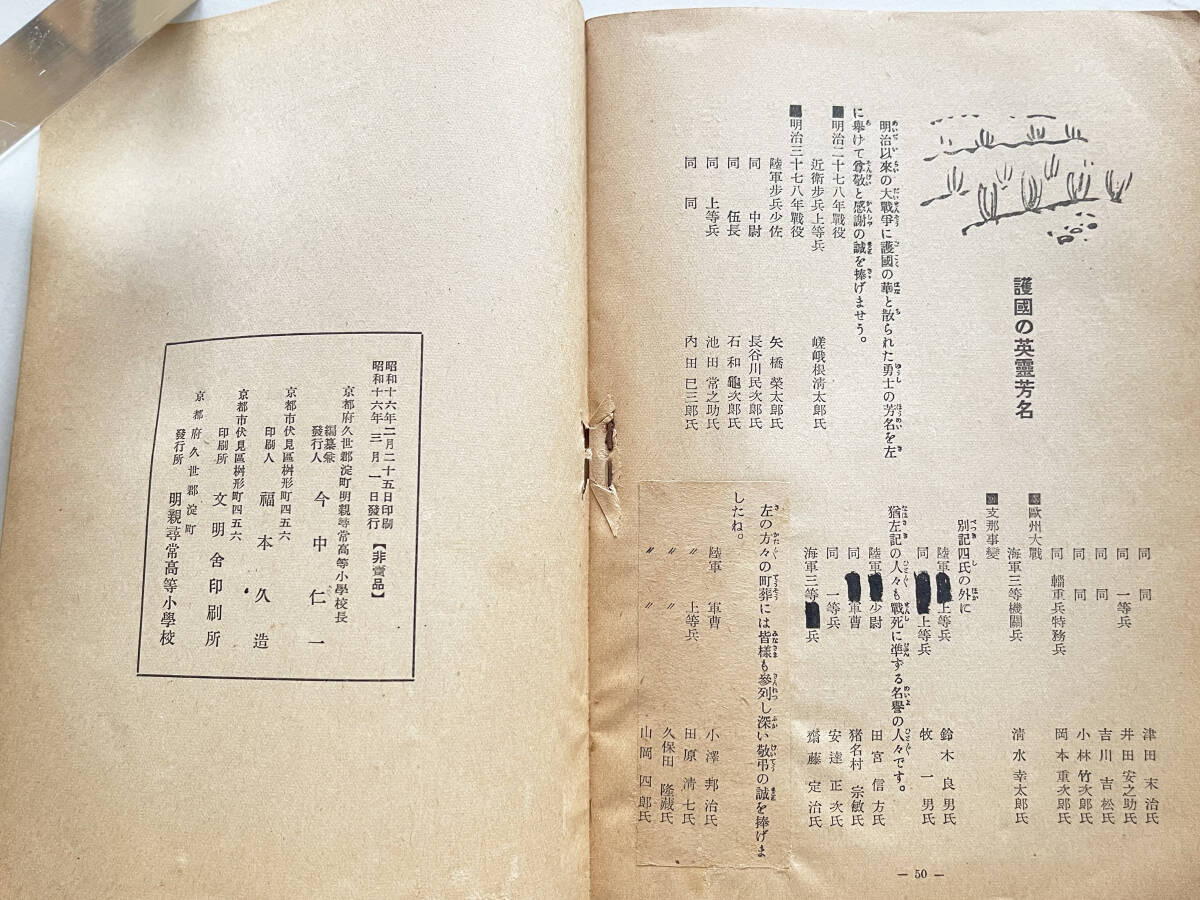 護國の英靈芳名
明治以來の大戰爭に護國の華と散られた勇士の芳名を左
に擧げて尊敬と感謝の誠を捧げませう。
■明治二十七八年戰役
近衛步兵上等兵 嵯峨根淸太郎氏
■明治三十七八年戰役
陸軍步兵少佐 矢橋榮太郎氏
同 中尉 長谷川民次郎氏
同 伍長 石和龜次郎氏
同 上等兵 池田常之助氏
同 同 內田巳三郎氏
同 同 津田末治氏
同 一等兵 井田安之助氏
同 同 吉川吉松氏
同 同 小林竹次郎氏
同 輜重兵特務兵 岡本重次郎氏
■歐州大戰
海軍三等機關兵 淸水幸太郎氏
■支那事變
別記四氏の外に
陸軍 上等兵 鈴木良男氏
同 上等兵 牧一男氏
猶左記の人々も戰死に準ずる名譽の人々です。
陸軍 少尉 田宮信方氏
同 軍曹 猪名村宗敏氏
同 一等兵 安達正次氏
海軍三等 兵 齋藤定治氏
左の方々の町葬には皆樣も參列し深い敬弔の誠を捧げま
したね。
陸軍 軍曹 小澤邦治氏
〃 上等兵 田原淸七氏
〃 〃 久保田隆藏氏
〃 〃 山岡四郎氏
— 50 —
昭和十六年二月二十五日印刷
昭和十六年三月一日發行
【非賣品】
京都府久世郡淀町明親尋常高等小學校長
編纂兼發行人 今中仁一
京都市伏見區桝形町四五六
印刷人 福本久造
京都市伏見區桝形町四五六
印刷所 文明舍印刷所
京都府久世郡淀町
發行所 明親尋常高等小學校